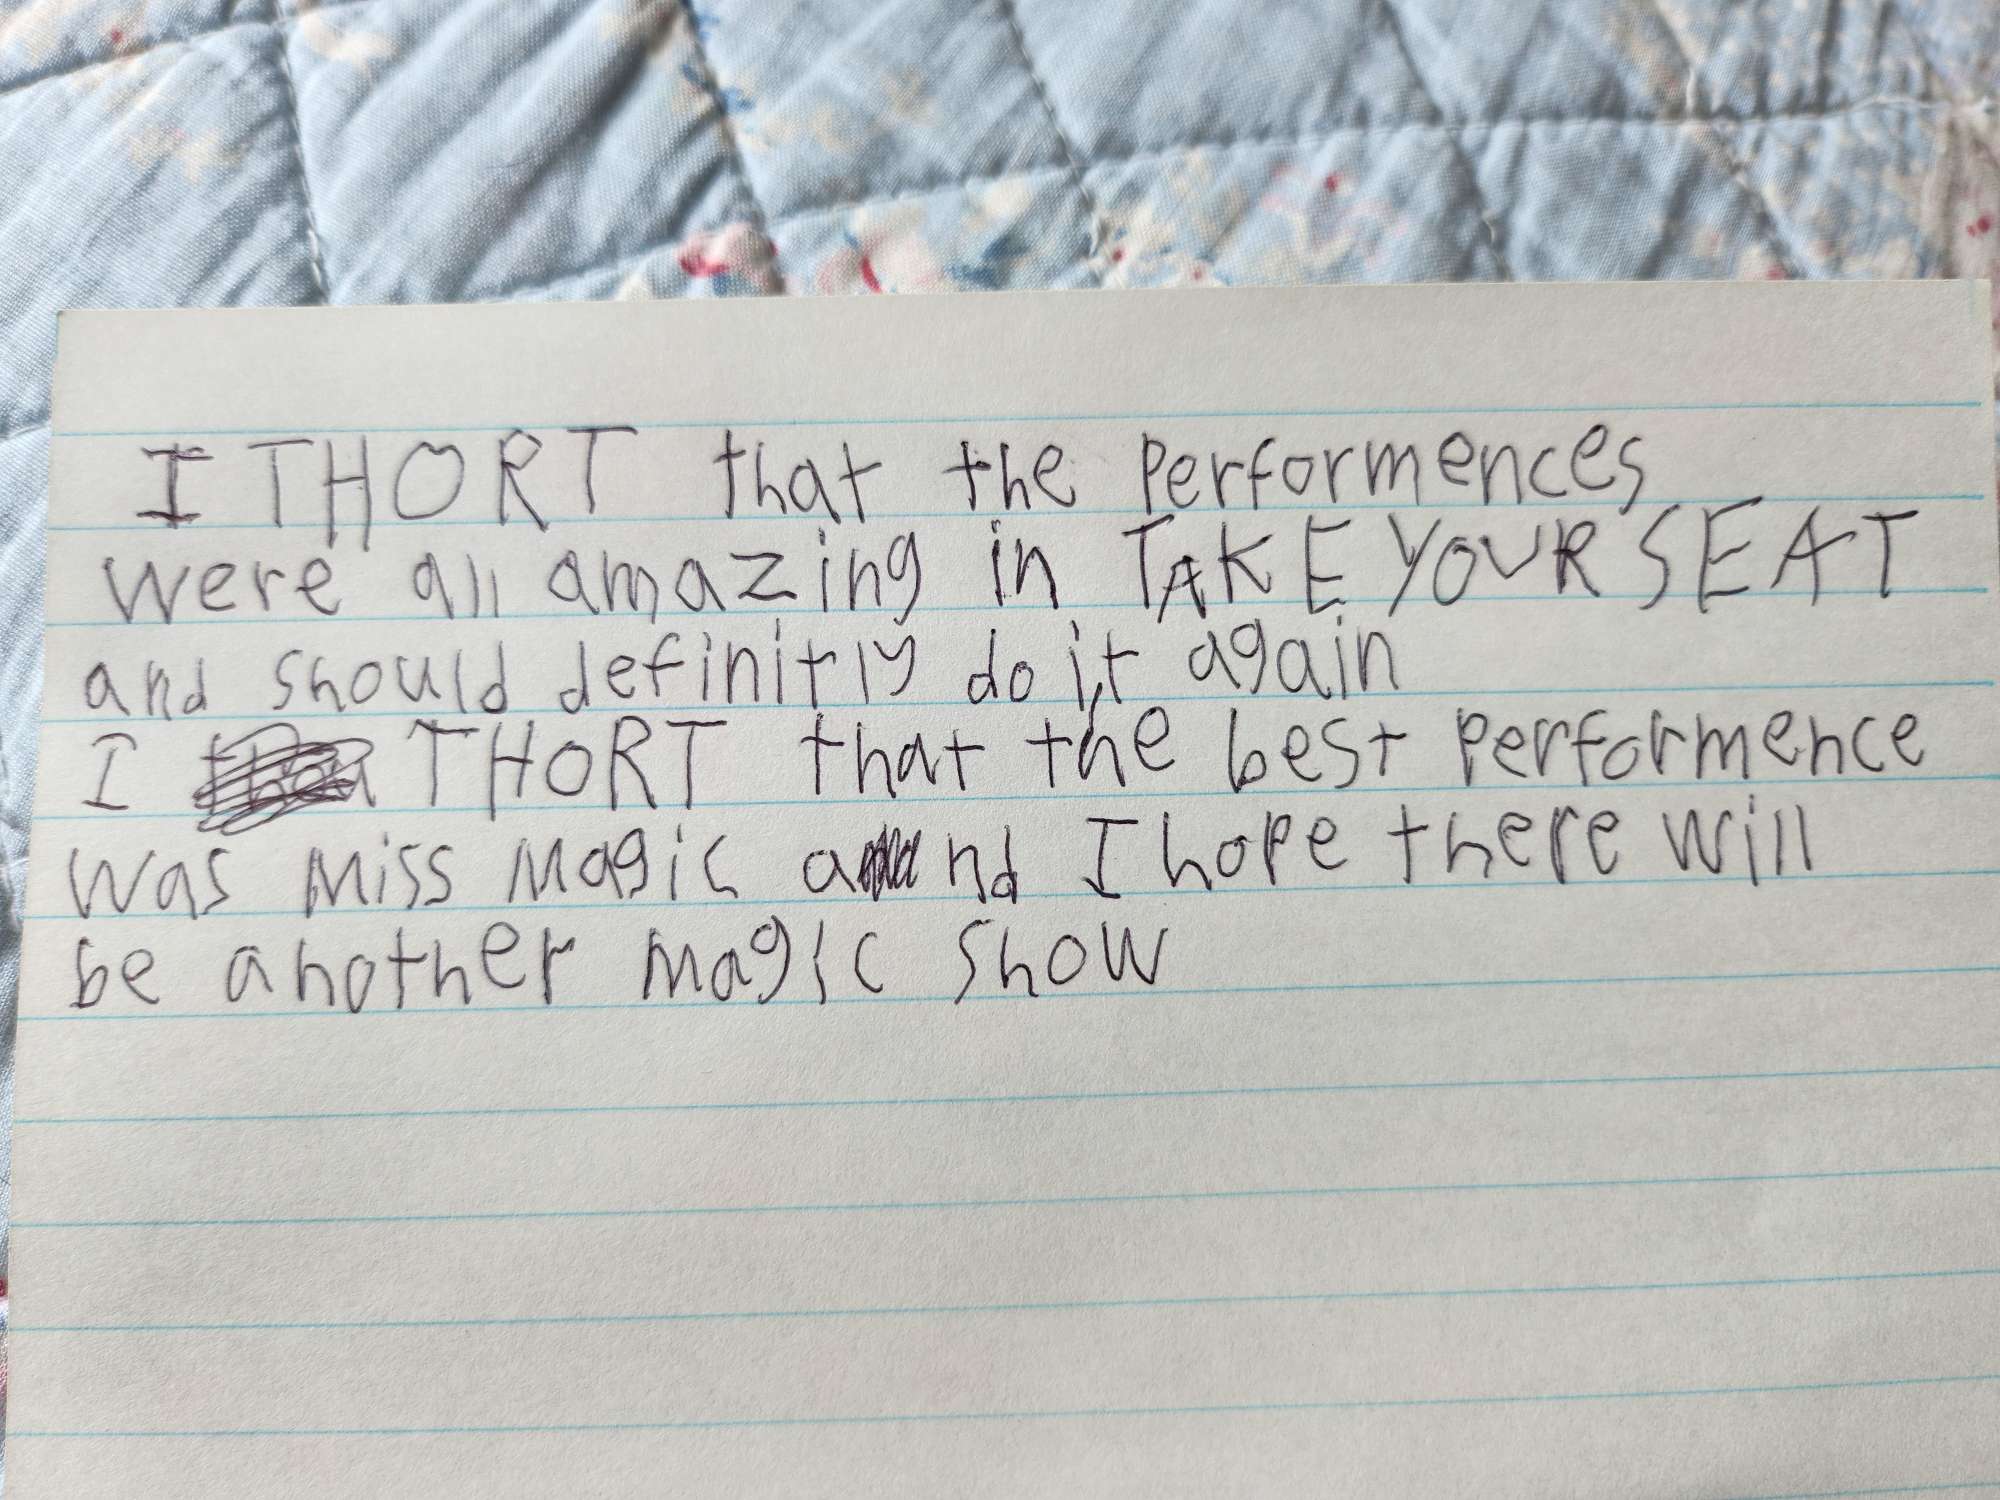 I THORT that the performences
were all amazing in TAKE YOUR SEAT
and should definitly do it again
I THORT that the best performence
was Miss Magic and I hope there will
be another magic show